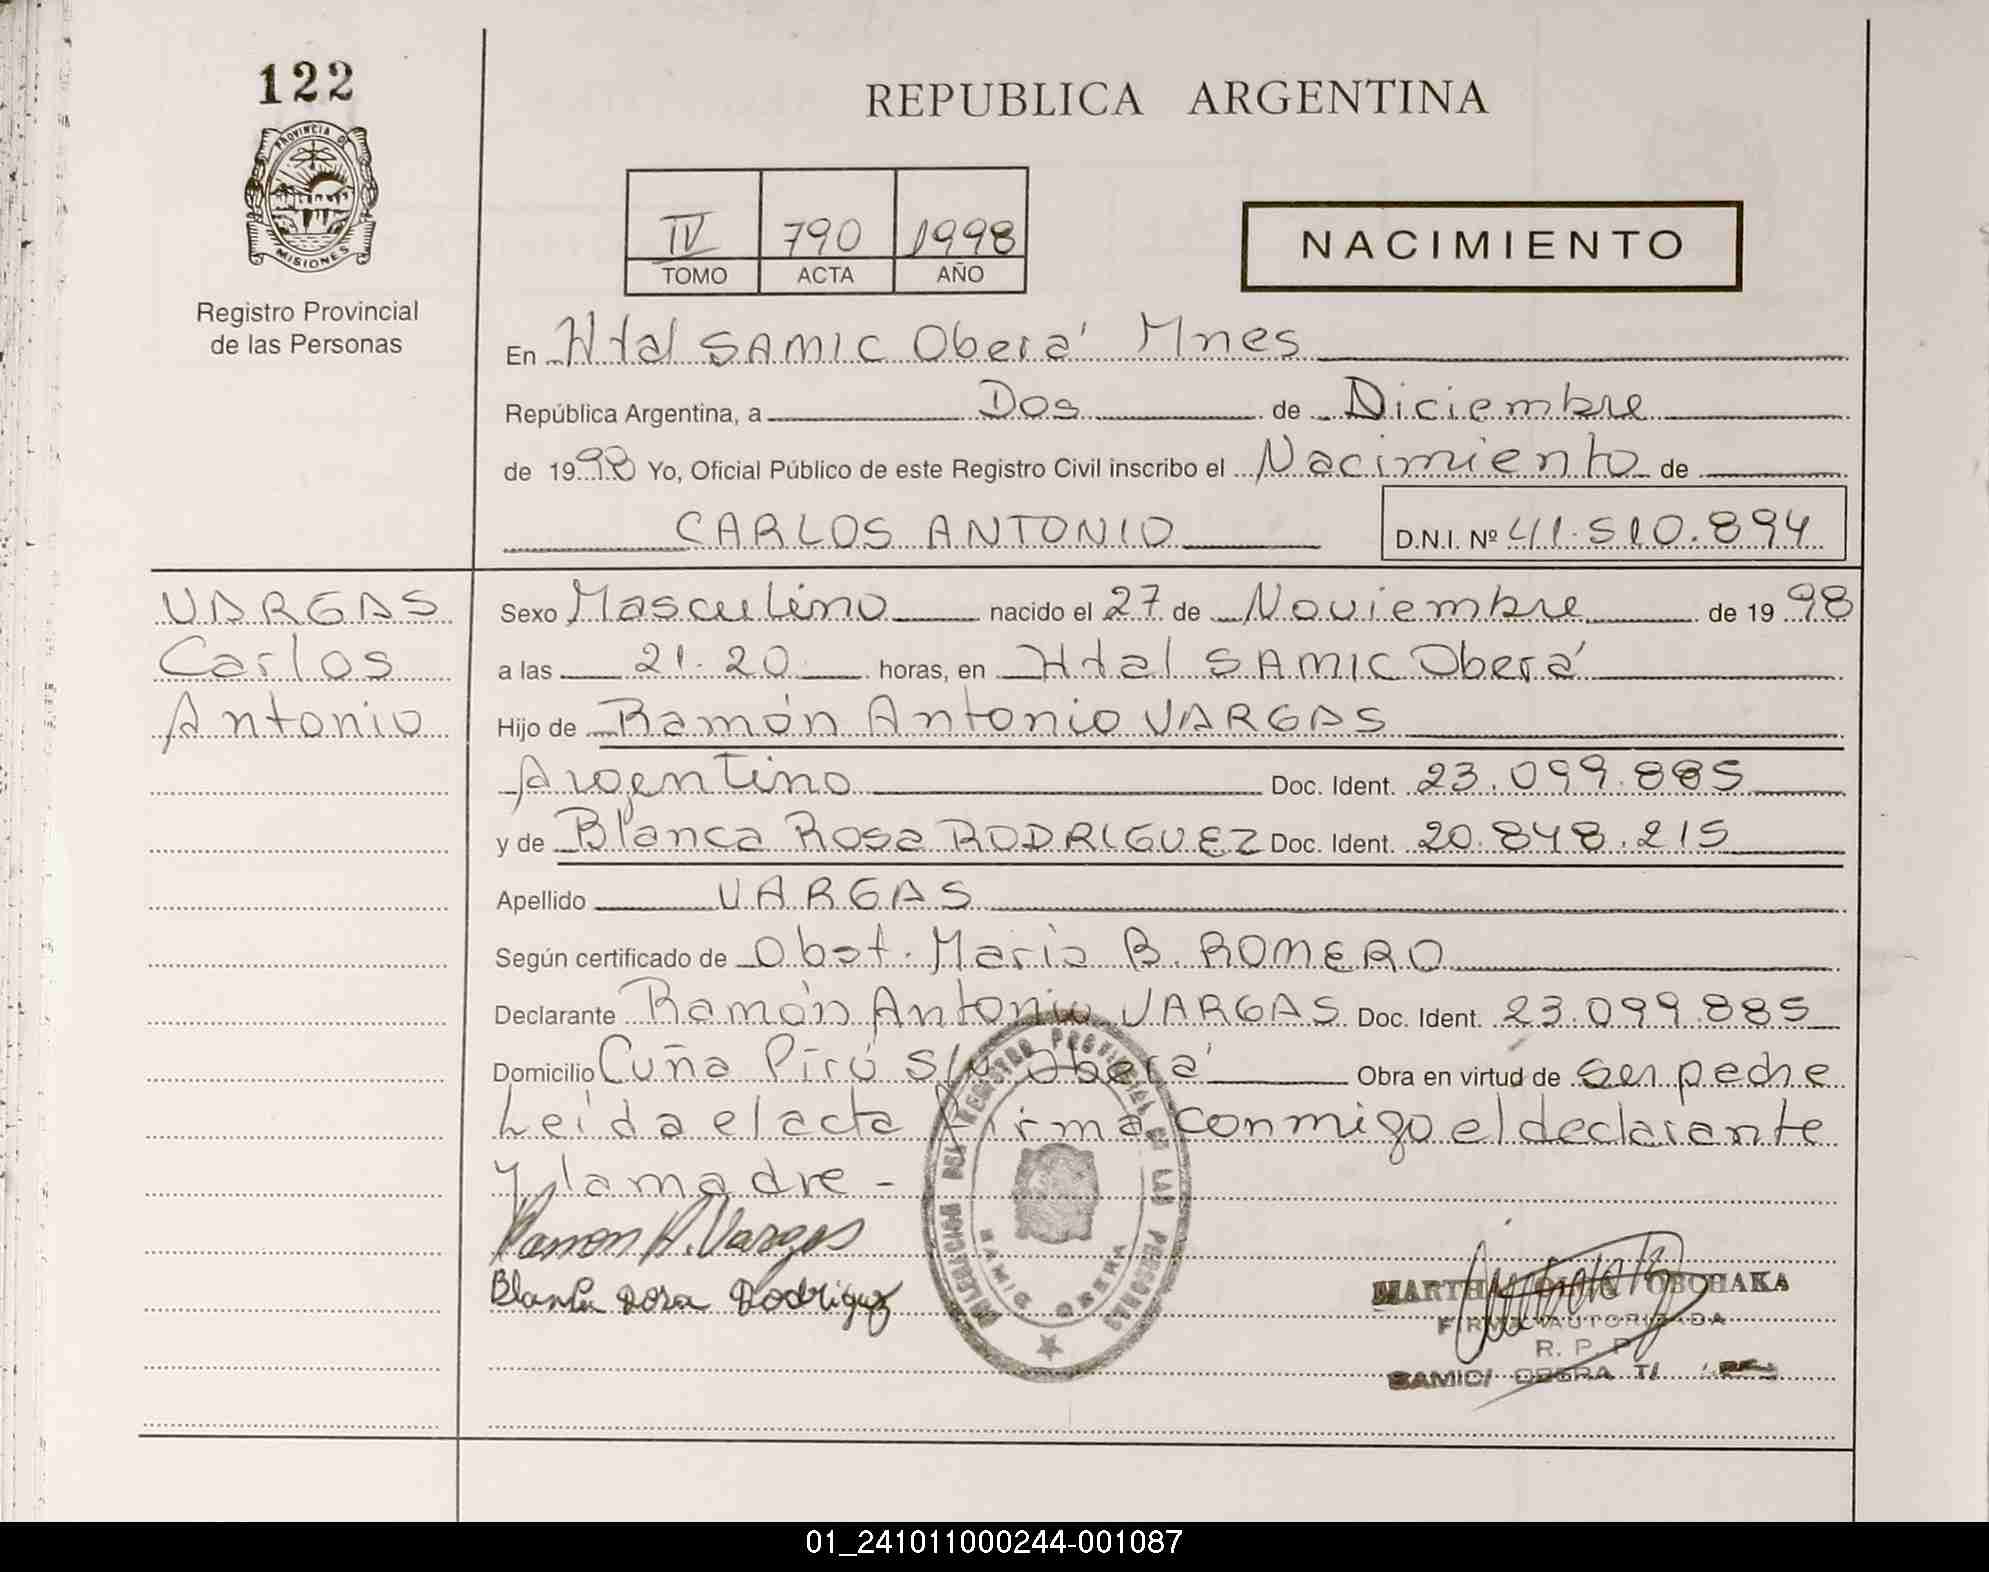 122
REPUBLICA ARGENTINA
PROVINCIA DE
MISIONES
Registro Provincial
de las Personas
IV 790 1998
TOMO ACTA AÑO
NACIMIENTO
En Htal SAMIC Oberá Mnes
República Argentina, a Dos de Diciembre
de 1998 Yo, Oficial Público de este Registro Civil inscribo el Nacimiento de
CARLOS ANTONIO D.N.I. Nº 41.510.894
VARGAS
Carlos
Antonio
Sexo Masculino nacido el 27 de Noviembre de 1998
a las 21.20 horas, en Htal SAMIC Oberá
Hijo de Ramón Antonio VARGAS
Argentino Doc. Ident. 23.099.885
y de Blanca Rosa RODRIGUEZ Doc. Ident. 20.848.215
Apellido VARGAS
Según certificado de Obst. Maria B. ROMERO
Declarante Ramón Antonio VARGAS Doc. Ident. 23.099.885
Domicilio Cuña Pirú S/N Oberá Obra en virtud de ser padre
Leída el acta firma conmigo el declarante
y la madre -
Ramon A. Vargas
Blanca Rosa Rodriguez
DELEGACION DEL REGISTRO PROVINCIAL DE LAS PERSONAS
SAMIC OBERA
MARTHA
FIRMA AUTORIZADA
R. P. P.
SAMIC/ OBERA
01_241011000244-001087